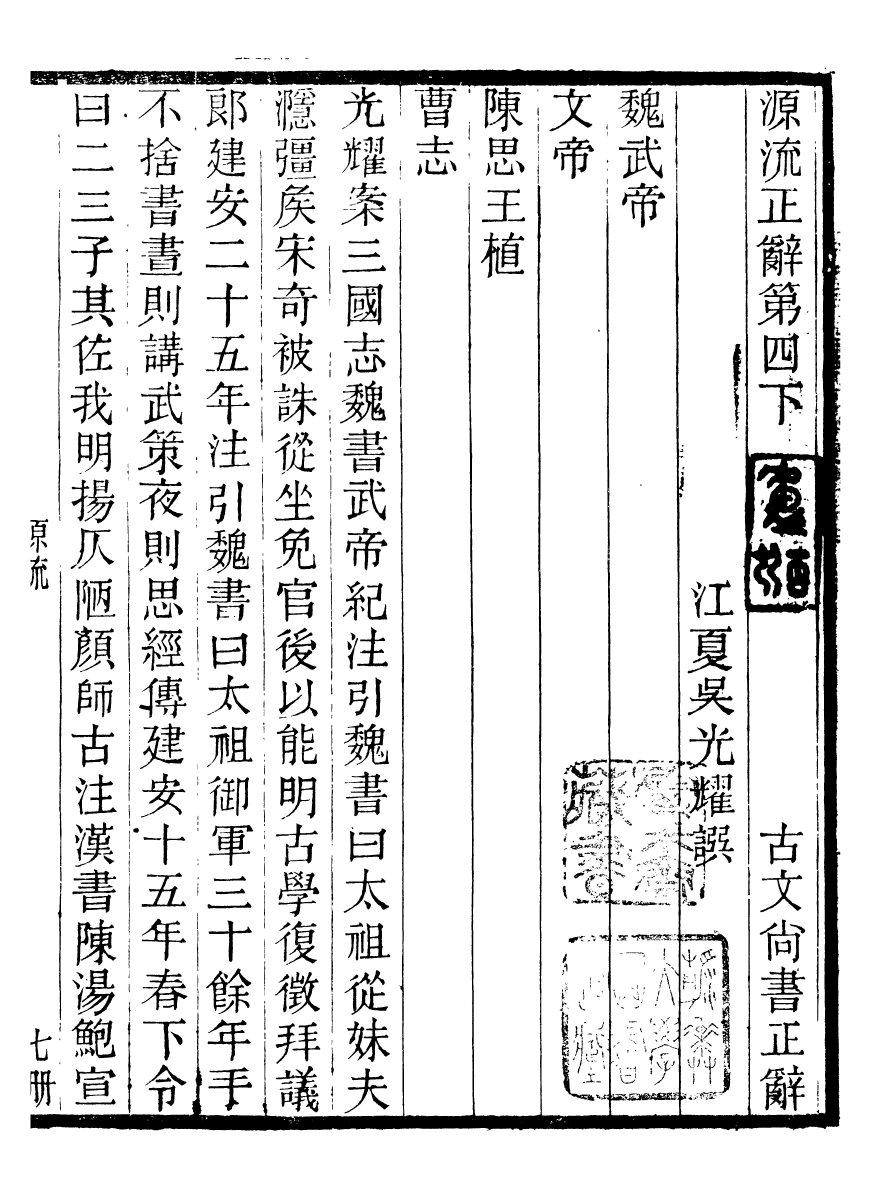 源流正辭第四下　古文尙書正辭
江夏吳光耀譔
魏武帝
文帝
陳思王植
曹志
光耀案三國志魏書武帝紀注引魏書曰太祖從妹夫
濦彊矦宋奇被誅從坐免官後以能明古學復徵拜議
郎建安二十五年注引魏書曰太祖御軍三十餘年手
不捨書晝則講武策夜則思經傳建安十五年春下令
曰二三子其佐我明揚仄陋顏師古注漢書陳湯鮑宣
原流　七册